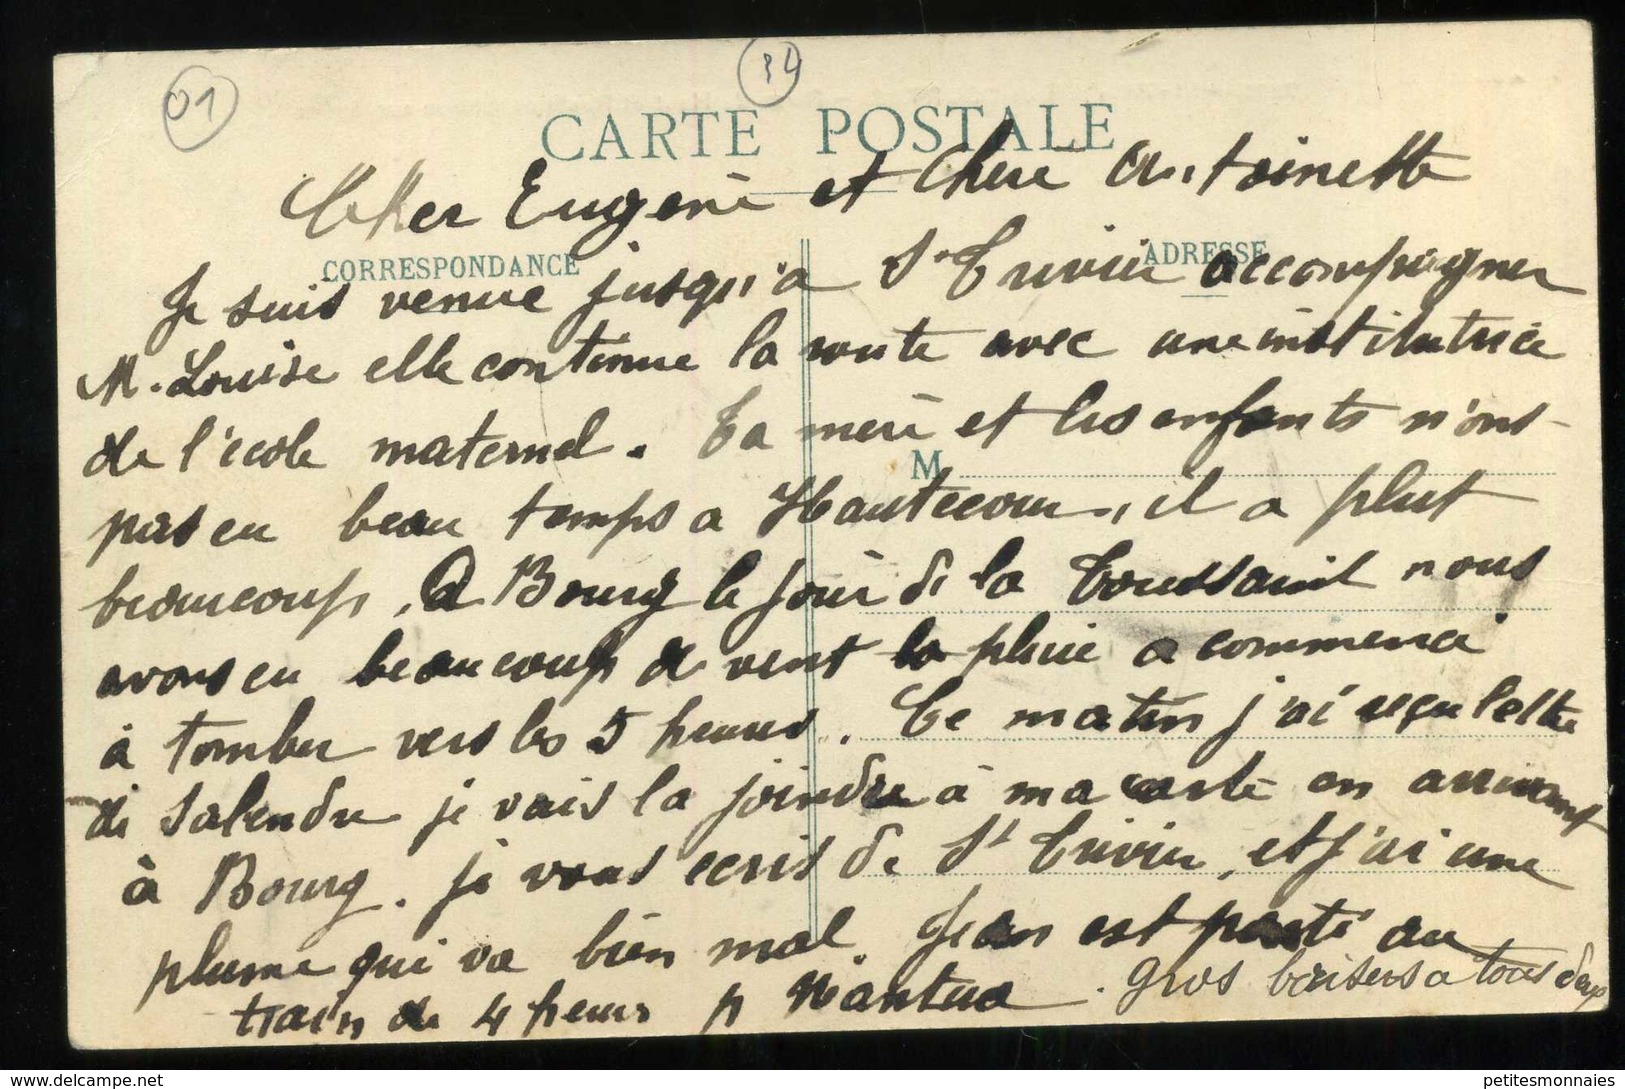 01
34
CARTE POSTALE
Cher Eugène et Chère Antoinette
CORRESPONDANCE
ADRESSE
Je suis venue jusqu'à St Trivier accompagner
M. Louise elle continue la route avec une institutrice
de l'école maternel. Ta mère et les enfants n'ont
M
pas eu beau temps a Hautecour, il a plut
beaucoup. A Bourg le jour de la Toussaint nous
avons eu beaucoup de vent la pluie a commencé
à tomber vers les 5 heures. Ce matin j'ai reçu lettre
de Salendre je vais la joindre à ma carte en arrivant
à Bourg. je vous ecris de St Trivier, et j'ai une
plume qui va bien mal. Jean est parti au
train de 4 heures p Nantua. Gros baisers a tous deux
petitesmonnaies